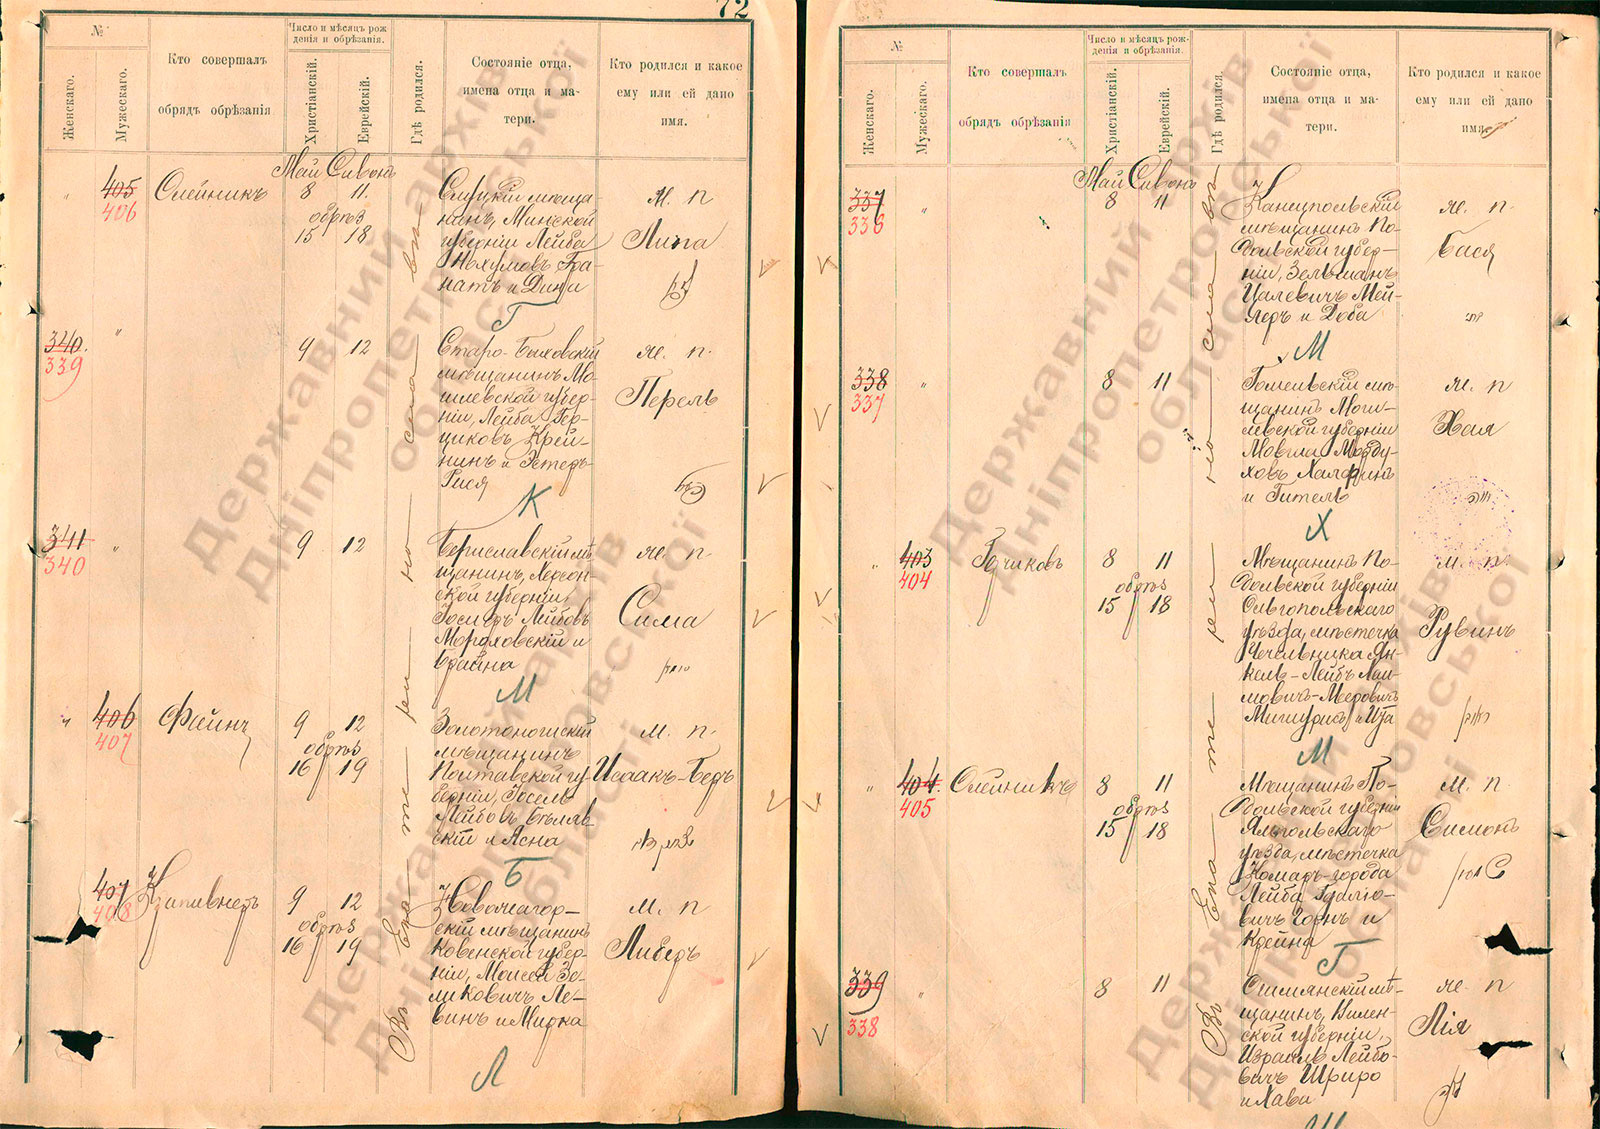 72
№
Женскаго.
Мужескаго.
Кто совершалъ
обрядъ обрѣзанія
Число и мѣсяцъ рож
денія и обрѣзанія.
Христіанскій.
Еврейскій.
Гдѣ родился.
Состояніе отца,
имена отца и ма-
тери.
Кто родился и какое
ему или ей дано
имя.
Май Сивонъ
" 405 Олейникъ 8 11.
406
обрѣз
15 18
Слуцкій мѣща
нинъ, Минской
губерніи Лейба
Нохумовъ Гра-
натъ и Дина
м. п
Липа
Г
340. " 9 12
339
Старо-Быховскій
мѣщанинъ Мо-
гилевской губер-
ніи, Лейба Гер-
циковъ Крей-
нинъ и Эстеръ-
Рися
же. п.
Перель
К
341 " 9 12
340
Бериславскій мѣ
щанинъ, Херсон-
ской губерніи,
Іосифъ Лейбовъ
Мордховскій и
Брайна
же. п
Сима
М
" 406 Файнъ 9 12
407
обрѣз
16 19
Золотоношскій
мѣщанинъ
Полтавской гу-
берніи, Іосель
Лейбовъ Бѣляв-
скій и Асна
м. п.
Исаакъ-Беръ
Б
407 Капивнеръ 9 12
408
обрѣз
16 19
Новожагор-
скій мѣщанинъ
Ковенской губер-
ніи, Моисей Зе-
ликовичъ Ле-
винъ и Мирка
м. п
Либеръ
Л
№
Женскаго.
Мужескаго.
Кто совершалъ
обрядъ обрѣзанія
Число и мѣсяцъ рож-
денія и обрѣзанія.
Христіанскій.
Еврейскій.
Гдѣ родился.
Состояніе отца,
имена отца и ма-
тери.
Кто родился и какое
ему или ей дано
имя.
Май Сивонъ
337 " 8 11
336
Канецпольскій
мѣщанинъ По-
дольской губер-
ніи, Зельманъ
Цалевичъ Мей-
леръ и Доба
же. п.
Бася
М
338 " 8 11
337
Гомельскій мѣ-
щанинъ Моги-
левской губерніи
Мовша Морду-
ховъ Халфинъ
и Гитель
же. п
Хая
Х
" 403 Гочиковъ 8 11
404
обрѣз
15 18
Мѣщанинъ По-
дольской губерніи
Ольгопольскаго
уѣзда, мѣстечка
Чечельника Ян-
кель-Лейбъ Хаи-
мовичъ-Мееровичъ
Мишурисъ и Ита
м. п.
Рувинъ
М
" 404. Олейникъ 8 11
405
обрѣз
15 18
Мѣщанинъ По-
дольской губерніи
Ямпольскаго
уѣзда, мѣстечка
Комаръ-города
Лейба Гдалiо-
вичъ Горнъ и
Крейна
м. п
Симонъ
Г
339 " 8 11
338
Мѣ-
щанинъ, Вилен-
ской губерніи,
Израиль Лейбо-
вичъ Шпиро
и Хава
же. п
Лія
Ш
Державний архів
Дніпропетровської
області